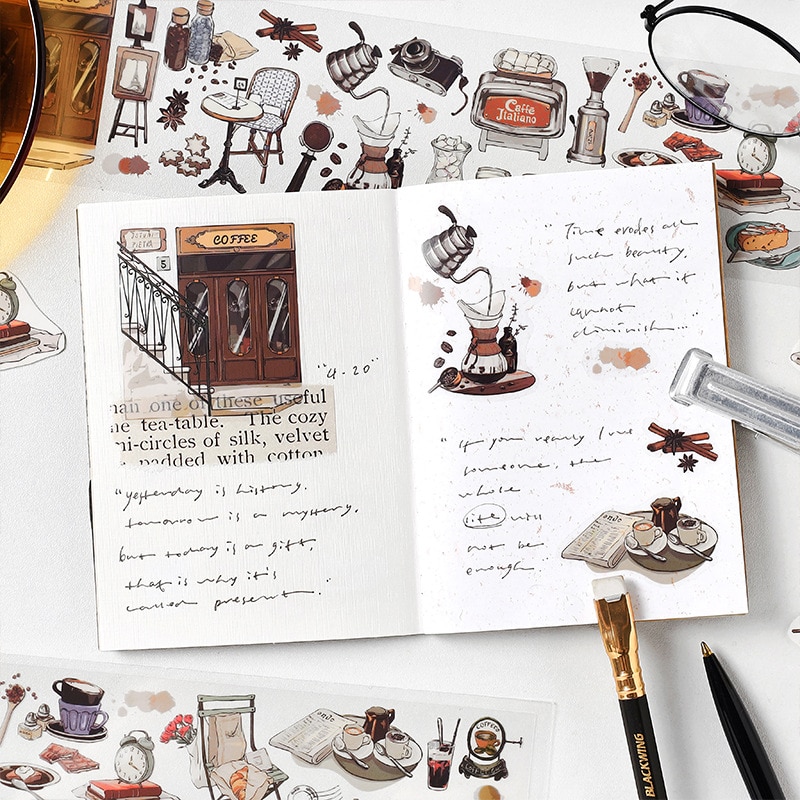 Caffè
Italiano
COFFEE
5
"4-20"
han one of these useful
he tea-table. The cozy
mi-circles of silk, velvet
padded with cotton
"yesterday is history.
tomorrow is a mystery.
but today is a gift,
that is why it's
called present."
"Time erodes all
such beauty,
but what it
cannot
diminish..."
"if you really love
someone, the
whole
life will
not be
enough"
BLACKWING
COFFEE